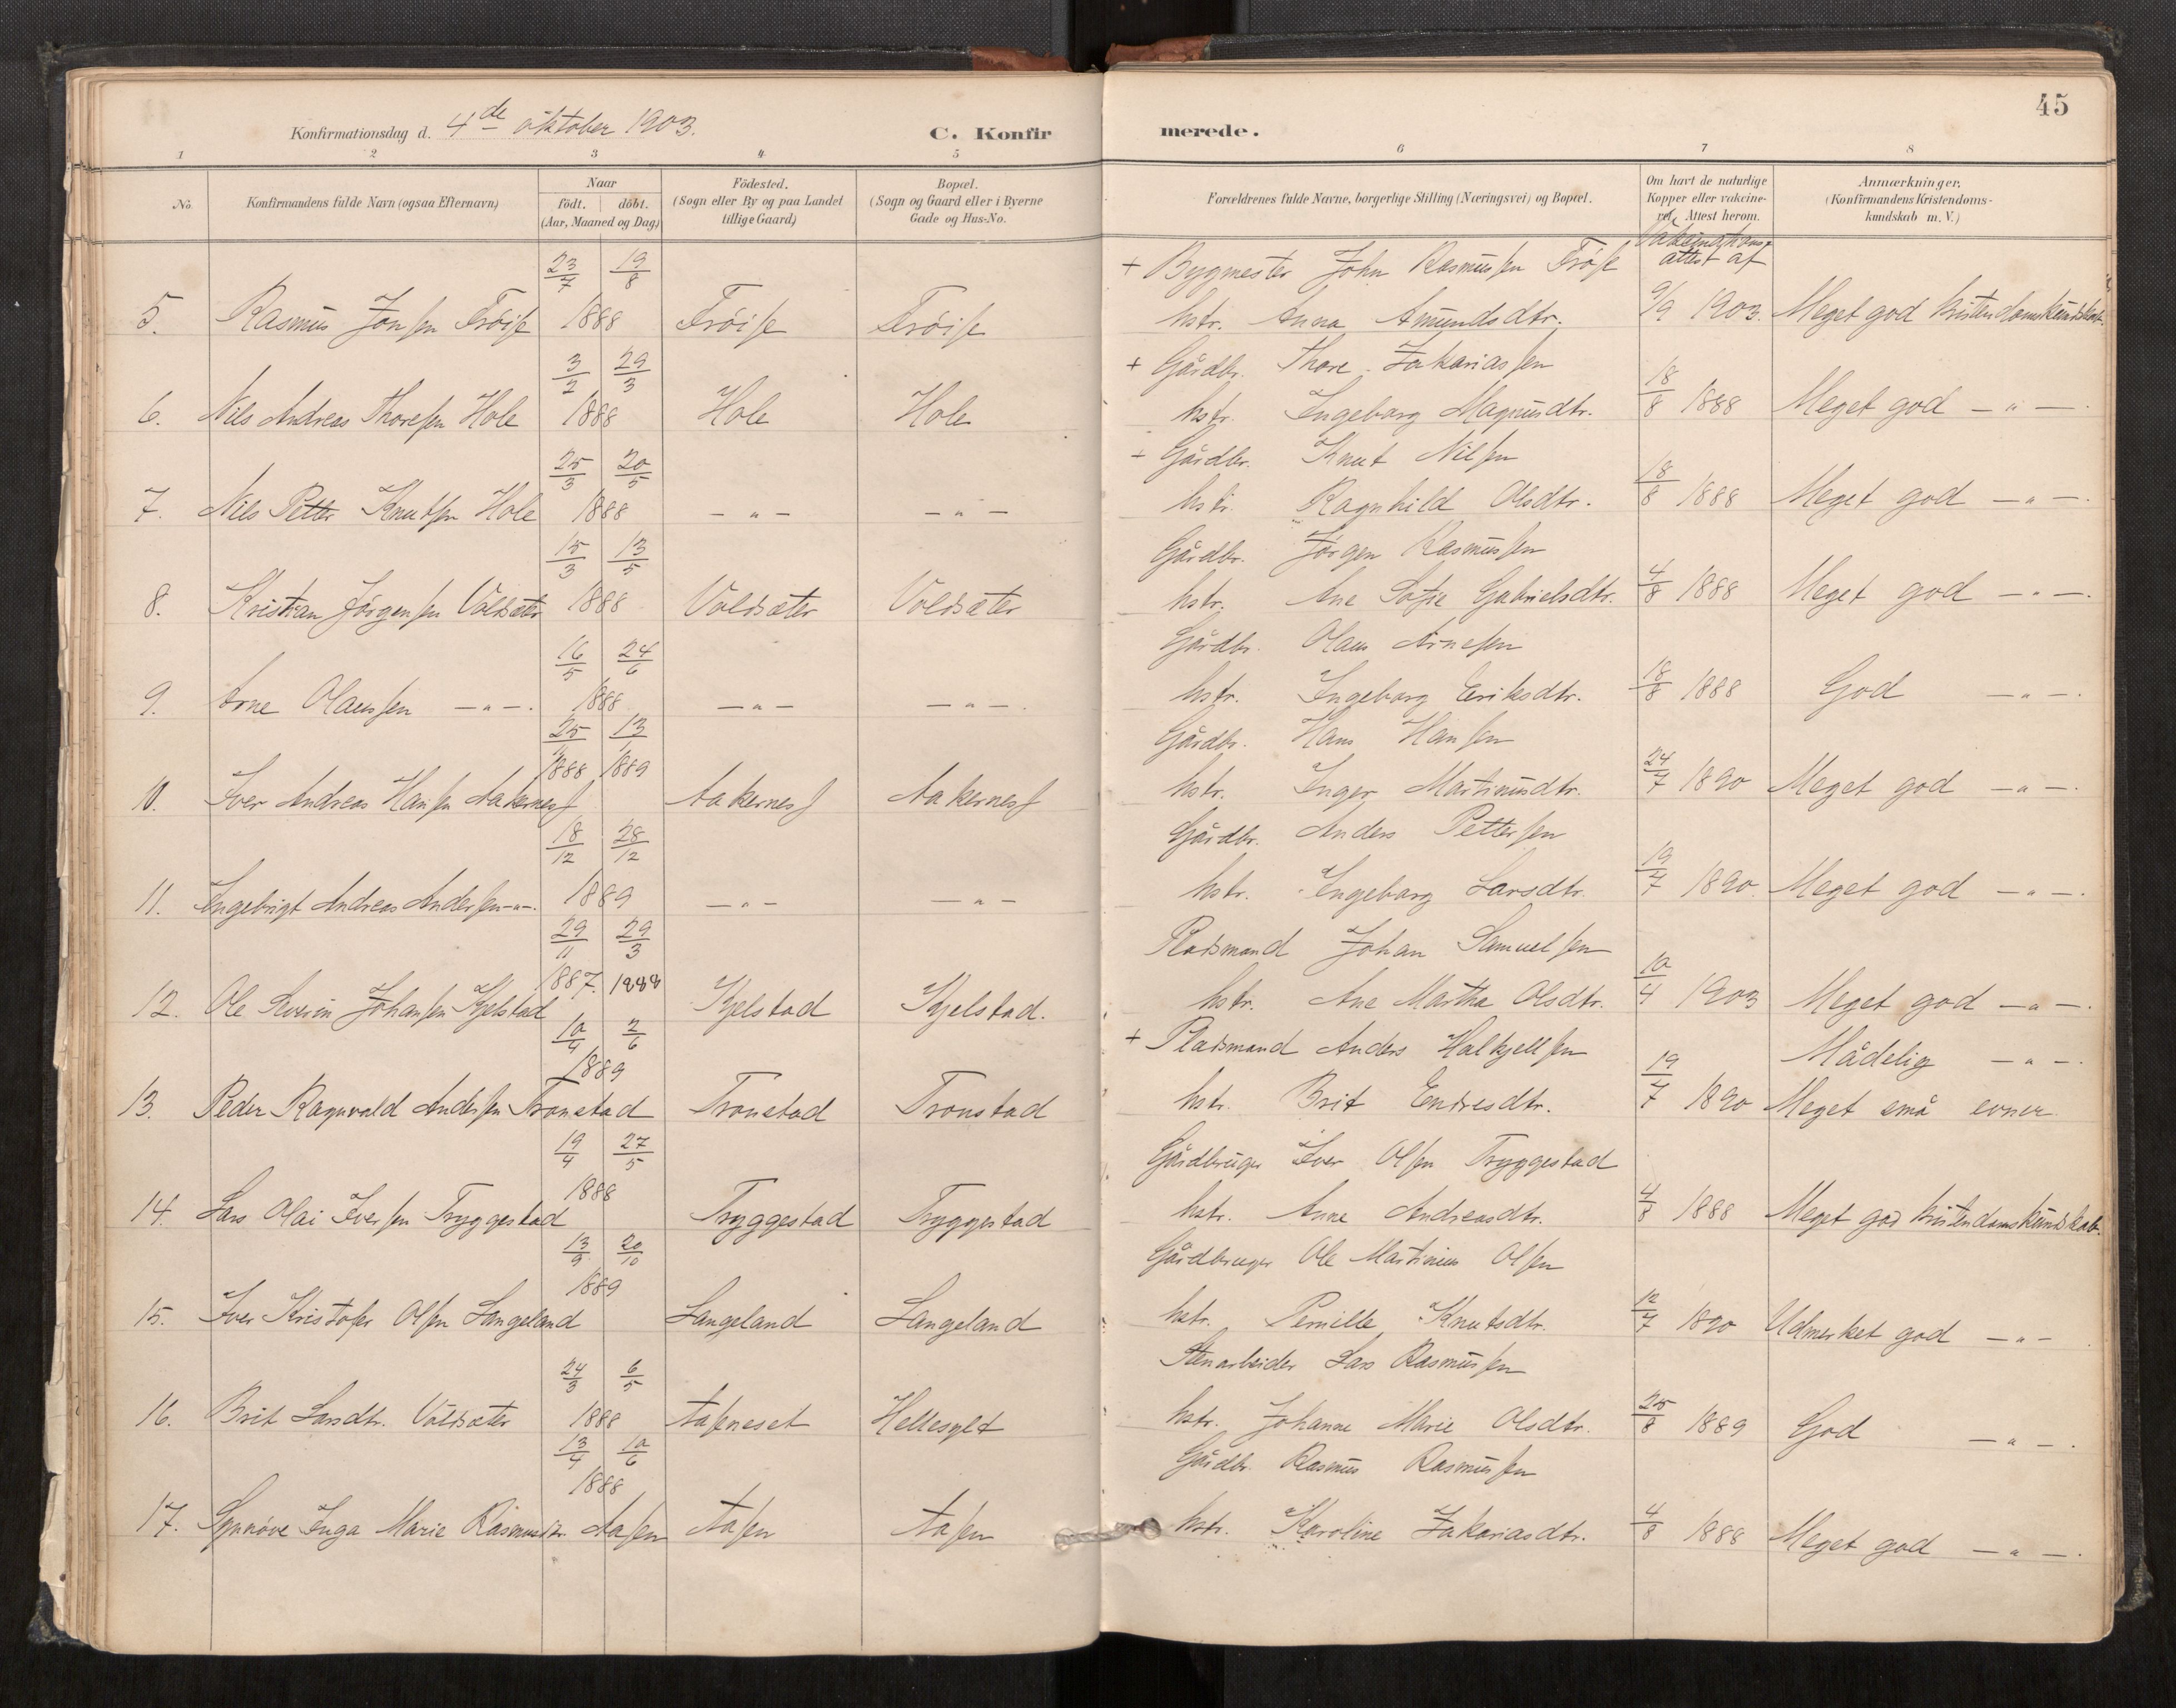 45
Konfirmationsdag d. 4de oktober 1903.
C. Konfirmerede.
1 2 3 4 5 6 7 8
No. Konfirmandens fulde Navn (ogsaa Efternavn) Naar födt. döbt. (Aar, Maaned og Dag) Födested. (Sogn eller By og paa Landet tillige Gaard) Bopæl. (Sogn og Gaard eller i Byerne Gade og Hus-No. Forældrenes fulde Navne, borgerlige Stilling (Næringsvei) og Bopæl. Om havt de naturlige Kopper eller vakcineret. Attest herom. Anmærkninger. (Konfirmandens Kristendomskundskab m. V.)
23/7 19/8 + Bygmester John Rasmussen Fröise Vakinations attest af
5. Rasmus Jonsen Fröise 1888 Fröise Fröise hstr. Anna Amundsdtr. 9/9 1903. Meget god kristendomskundskab.
3/2 29/3 + Gårdbr. Thore Zakariassen
6. Nils Andreas Thoresen Hole 1888 Hole Hole hstr. Ingeborg Magnusdtr. 18/8 1888 Meget god — " —.
25/3 20/5 + Gårdbr. Knut Nilsen
7. Nils Petter Knutsen Hole 1888 — " — — " — hstr. Ragnhild Olsdtr. 18/8 1888 Meget god — " —.
15/3 13/5 Gårdbr. Jörgen Rasmussen
8. Kristian Jörgensen Voldsæter 1888 Voldsæter Voldsæter hstr. Ane Sofie Gabrielsdtr. 4/8 1888 Meget god — " —.
16/5 24/6 Gårdbr. Olaus Arnesen
9. Arne Olaussen — " —. 1888 — " — — " —. hstr. Ingeborg Eriksdtr. 18/8 1888 God — " —.
25/11 13 Gårdbr. Hans Hansen
1888 1889
10. Iver Andreas Hansen Aakernes Aakernes Aakernes hstr. Inger Martinusdtr. 24/7 1890 Meget god — " —.
18/12 28/12 Gårdbr. Anders Pettersen
11. Ingebrigt Andreas Andersen — " —. 1889 — " — — " — hstr. Ingeborg Larsdtr. 19/7 1890. Meget god — " —.
29/11 29/3 Pladsmand Johan Samuelsen
1887. 1888
12. Ole Severin Johansen Kjelstad Kjelstad Kjelstad. hstr. Ane Martha Olsdtr. 10/4 1903 Meget god — " —.
10/4 2/6 + Pladsmand Anders Halkjellsen Mådelig — " —.
1889
13. Peder Ragnvald Andersen Tronstad Tronstad Tronstad hstr. Brit Endresdtr. 19/7 1890 Meget små evner
19/4 27/5 Gårdbruger Iver Olsen Tryggestad
1888
14. Lars Olai Iversen Tryggestad Tryggestad Tryggestad hstr. Anne Andreasdtr. 4/8 1888 Meget god kristendomskundskab.
13/9 20/10 Gårdbruger Ole Martinus Olsen
1889
15. Iver Kristofer Olsen Langeland Langeland Langeland hstr. Pernille Knutsdtr. 12/7 1890 Udmerket god — " —
24/3 6/5 Stenarbeider Lars Rasmussen
16. Brit Larsdtr. Voldsæter 1888 Aaseneset Hellesylt hstr. Johanne Marie Olsdtr. 25/8 1889 God — " —.
13/4 10/6 Gårdbr. Rasmus Rasmussen
1888
17. Synnöve Inga Marie Rasmusdtr. Aasen Aasen Aasen hstr. Karoline Zakariasdtr. 4/8 1888 Meget god — " —.